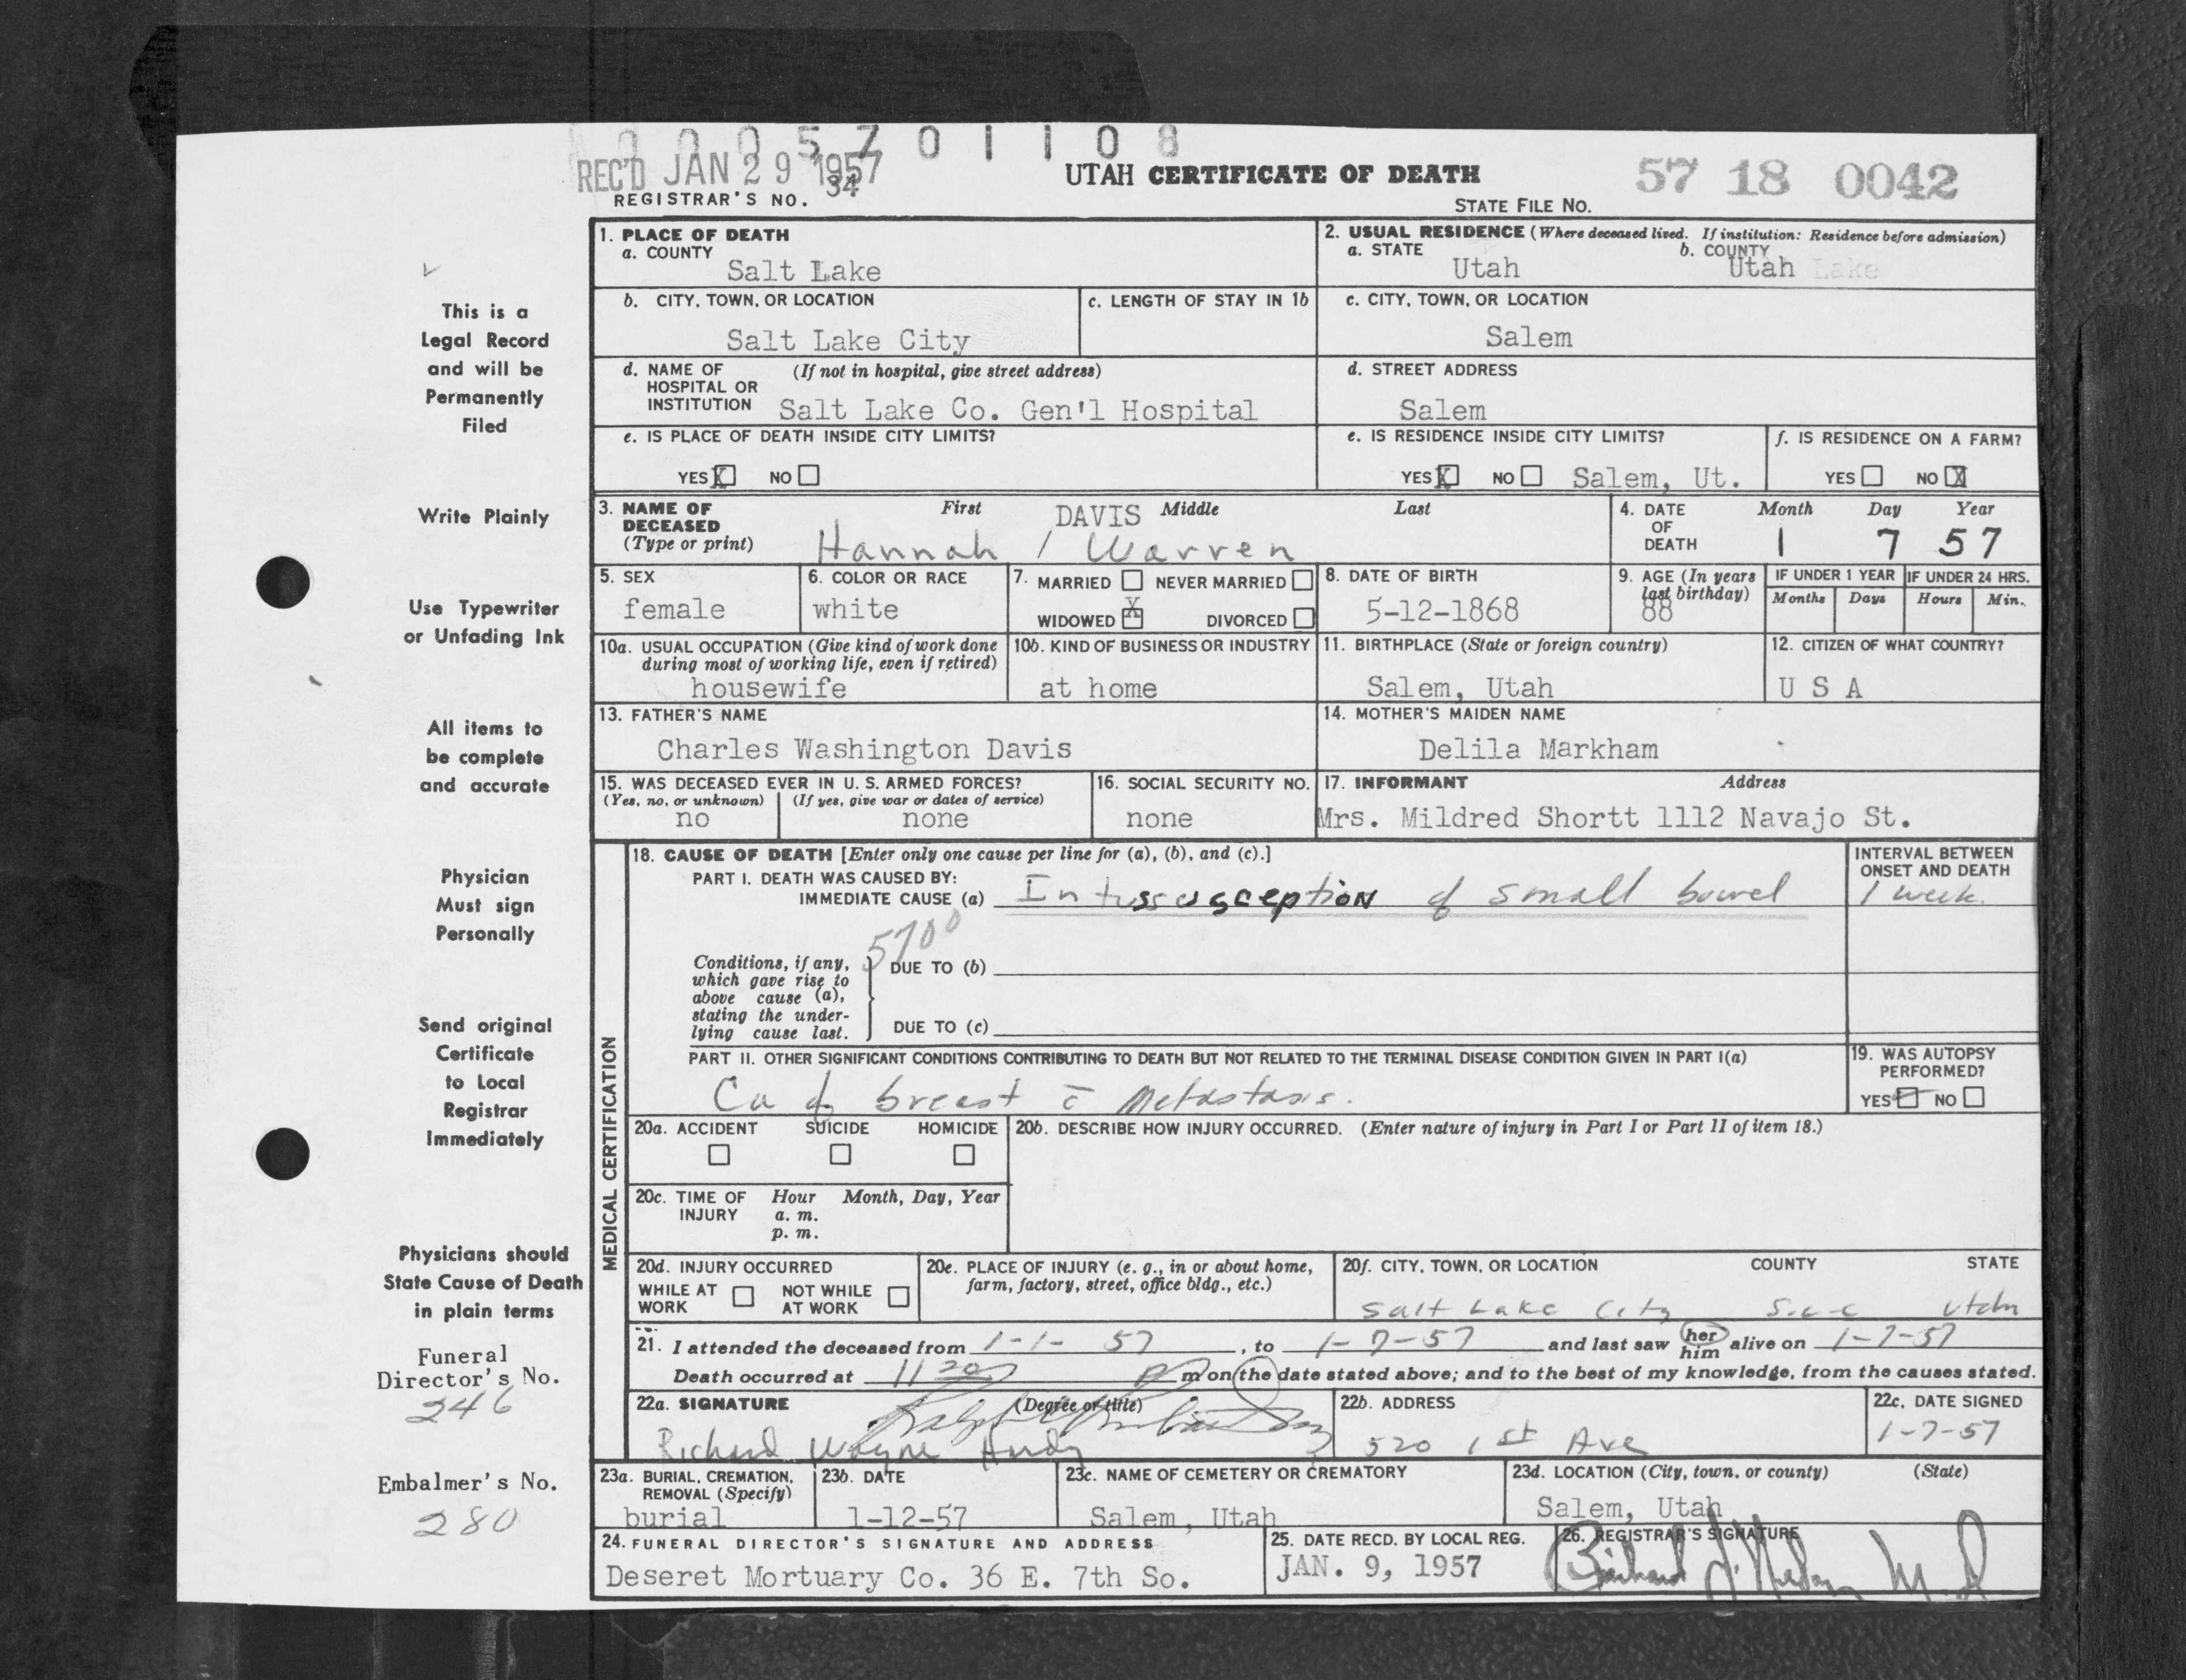 0005701108
REC'D JAN 29 1957
34
REGISTRAR'S NO.
UTAH CERTIFICATE OF DEATH
57 18 0042
STATE FILE NO.
1. PLACE OF DEATH
a. COUNTY
Salt Lake
2. USUAL RESIDENCE (Where deceased lived. If institution: Residence before admission)
a. STATE b. COUNTY
Utah Utah Lake
b. CITY, TOWN, OR LOCATION c. LENGTH OF STAY IN 1b
Salt Lake City
c. CITY, TOWN, OR LOCATION
Salem
d. NAME OF HOSPITAL OR INSTITUTION (If not in hospital, give street address)
Salt Lake Co. Gen'l Hospital
d. STREET ADDRESS
Salem
e. IS PLACE OF DEATH INSIDE CITY LIMITS?
YES X NO
e. IS RESIDENCE INSIDE CITY LIMITS?
YES X NO Salem, Ut.
f. IS RESIDENCE ON A FARM?
YES NO X
3. NAME OF DECEASED (Type or print)
First Middle Last
DAVIS
Hannah / Warren
4. DATE OF DEATH Month Day Year
1 7 57
5. SEX
female
6. COLOR OR RACE
white
7. MARRIED NEVER MARRIED
WIDOWED X DIVORCED
8. DATE OF BIRTH
5-12-1868
9. AGE (In years last birthday)
88
IF UNDER 1 YEAR IF UNDER 24 HRS.
Months Days Hours Min.
10a. USUAL OCCUPATION (Give kind of work done during most of working life, even if retired)
housewife
10b. KIND OF BUSINESS OR INDUSTRY
at home
11. BIRTHPLACE (State or foreign country)
Salem, Utah
12. CITIZEN OF WHAT COUNTRY?
U S A
13. FATHER'S NAME
Charles Washington Davis
14. MOTHER'S MAIDEN NAME
Delila Markham
15. WAS DECEASED EVER IN U. S. ARMED FORCES?
(Yes, no, or unknown) (If yes, give war or dates of service)
no none
16. SOCIAL SECURITY NO.
none
17. INFORMANT Address
Mrs. Mildred Shortt 1112 Navajo St.
MEDICAL CERTIFICATION
18. CAUSE OF DEATH [Enter only one cause per line for (a), (b), and (c).]
PART I. DEATH WAS CAUSED BY:
IMMEDIATE CAUSE (a) Intussusception of small bowel
INTERVAL BETWEEN ONSET AND DEATH
1 week.
5700
Conditions, if any, which gave rise to above cause (a), stating the underlying cause last.
DUE TO (b)
DUE TO (c)
PART II. OTHER SIGNIFICANT CONDITIONS CONTRIBUTING TO DEATH BUT NOT RELATED TO THE TERMINAL DISEASE CONDITION GIVEN IN PART I(a)
Ca of breast c̄ Metastasis.
19. WAS AUTOPSY PERFORMED?
YES NO
20a. ACCIDENT SUICIDE HOMICIDE
20b. DESCRIBE HOW INJURY OCCURRED. (Enter nature of injury in Part I or Part II of item 18.)
20c. TIME OF INJURY Hour Month, Day, Year
a. m.
p. m.
20d. INJURY OCCURRED
WHILE AT WORK NOT WHILE AT WORK
20e. PLACE OF INJURY (e. g., in or about home, farm, factory, street, office bldg., etc.)
20f. CITY, TOWN, OR LOCATION COUNTY STATE
Salt Lake City Utah
21. I attended the deceased from 1-1-57, to 1-7-57 and last saw her him alive on 1-7-57
Death occurred at 11 20 p m on the date stated above; and to the best of my knowledge, from the causes stated.
22a. SIGNATURE (Degree or title)
Richard Wayne
22b. ADDRESS
520 1st Ave
22c. DATE SIGNED
1-7-57
23a. BURIAL, CREMATION, REMOVAL (Specify)
burial
23b. DATE
1-12-57
23c. NAME OF CEMETERY OR CREMATORY
Salem, Utah
23d. LOCATION (City, town, or county) (State)
Salem, Utah
24. FUNERAL DIRECTOR'S SIGNATURE AND ADDRESS
Deseret Mortuary Co. 36 E. 7th So.
25. DATE RECD. BY LOCAL REG.
JAN. 9, 1957
26. REGISTRAR'S SIGNATURE
This is a
Legal Record
and will be
Permanently
Filed
Write Plainly
Use Typewriter
or Unfading Ink
All items to
be complete
and accurate
Physician
Must sign
Personally
Send original
Certificate
to Local
Registrar
Immediately
Physicians should
State Cause of Death
in plain terms
Funeral
Director's No.
246
Embalmer's No.
280